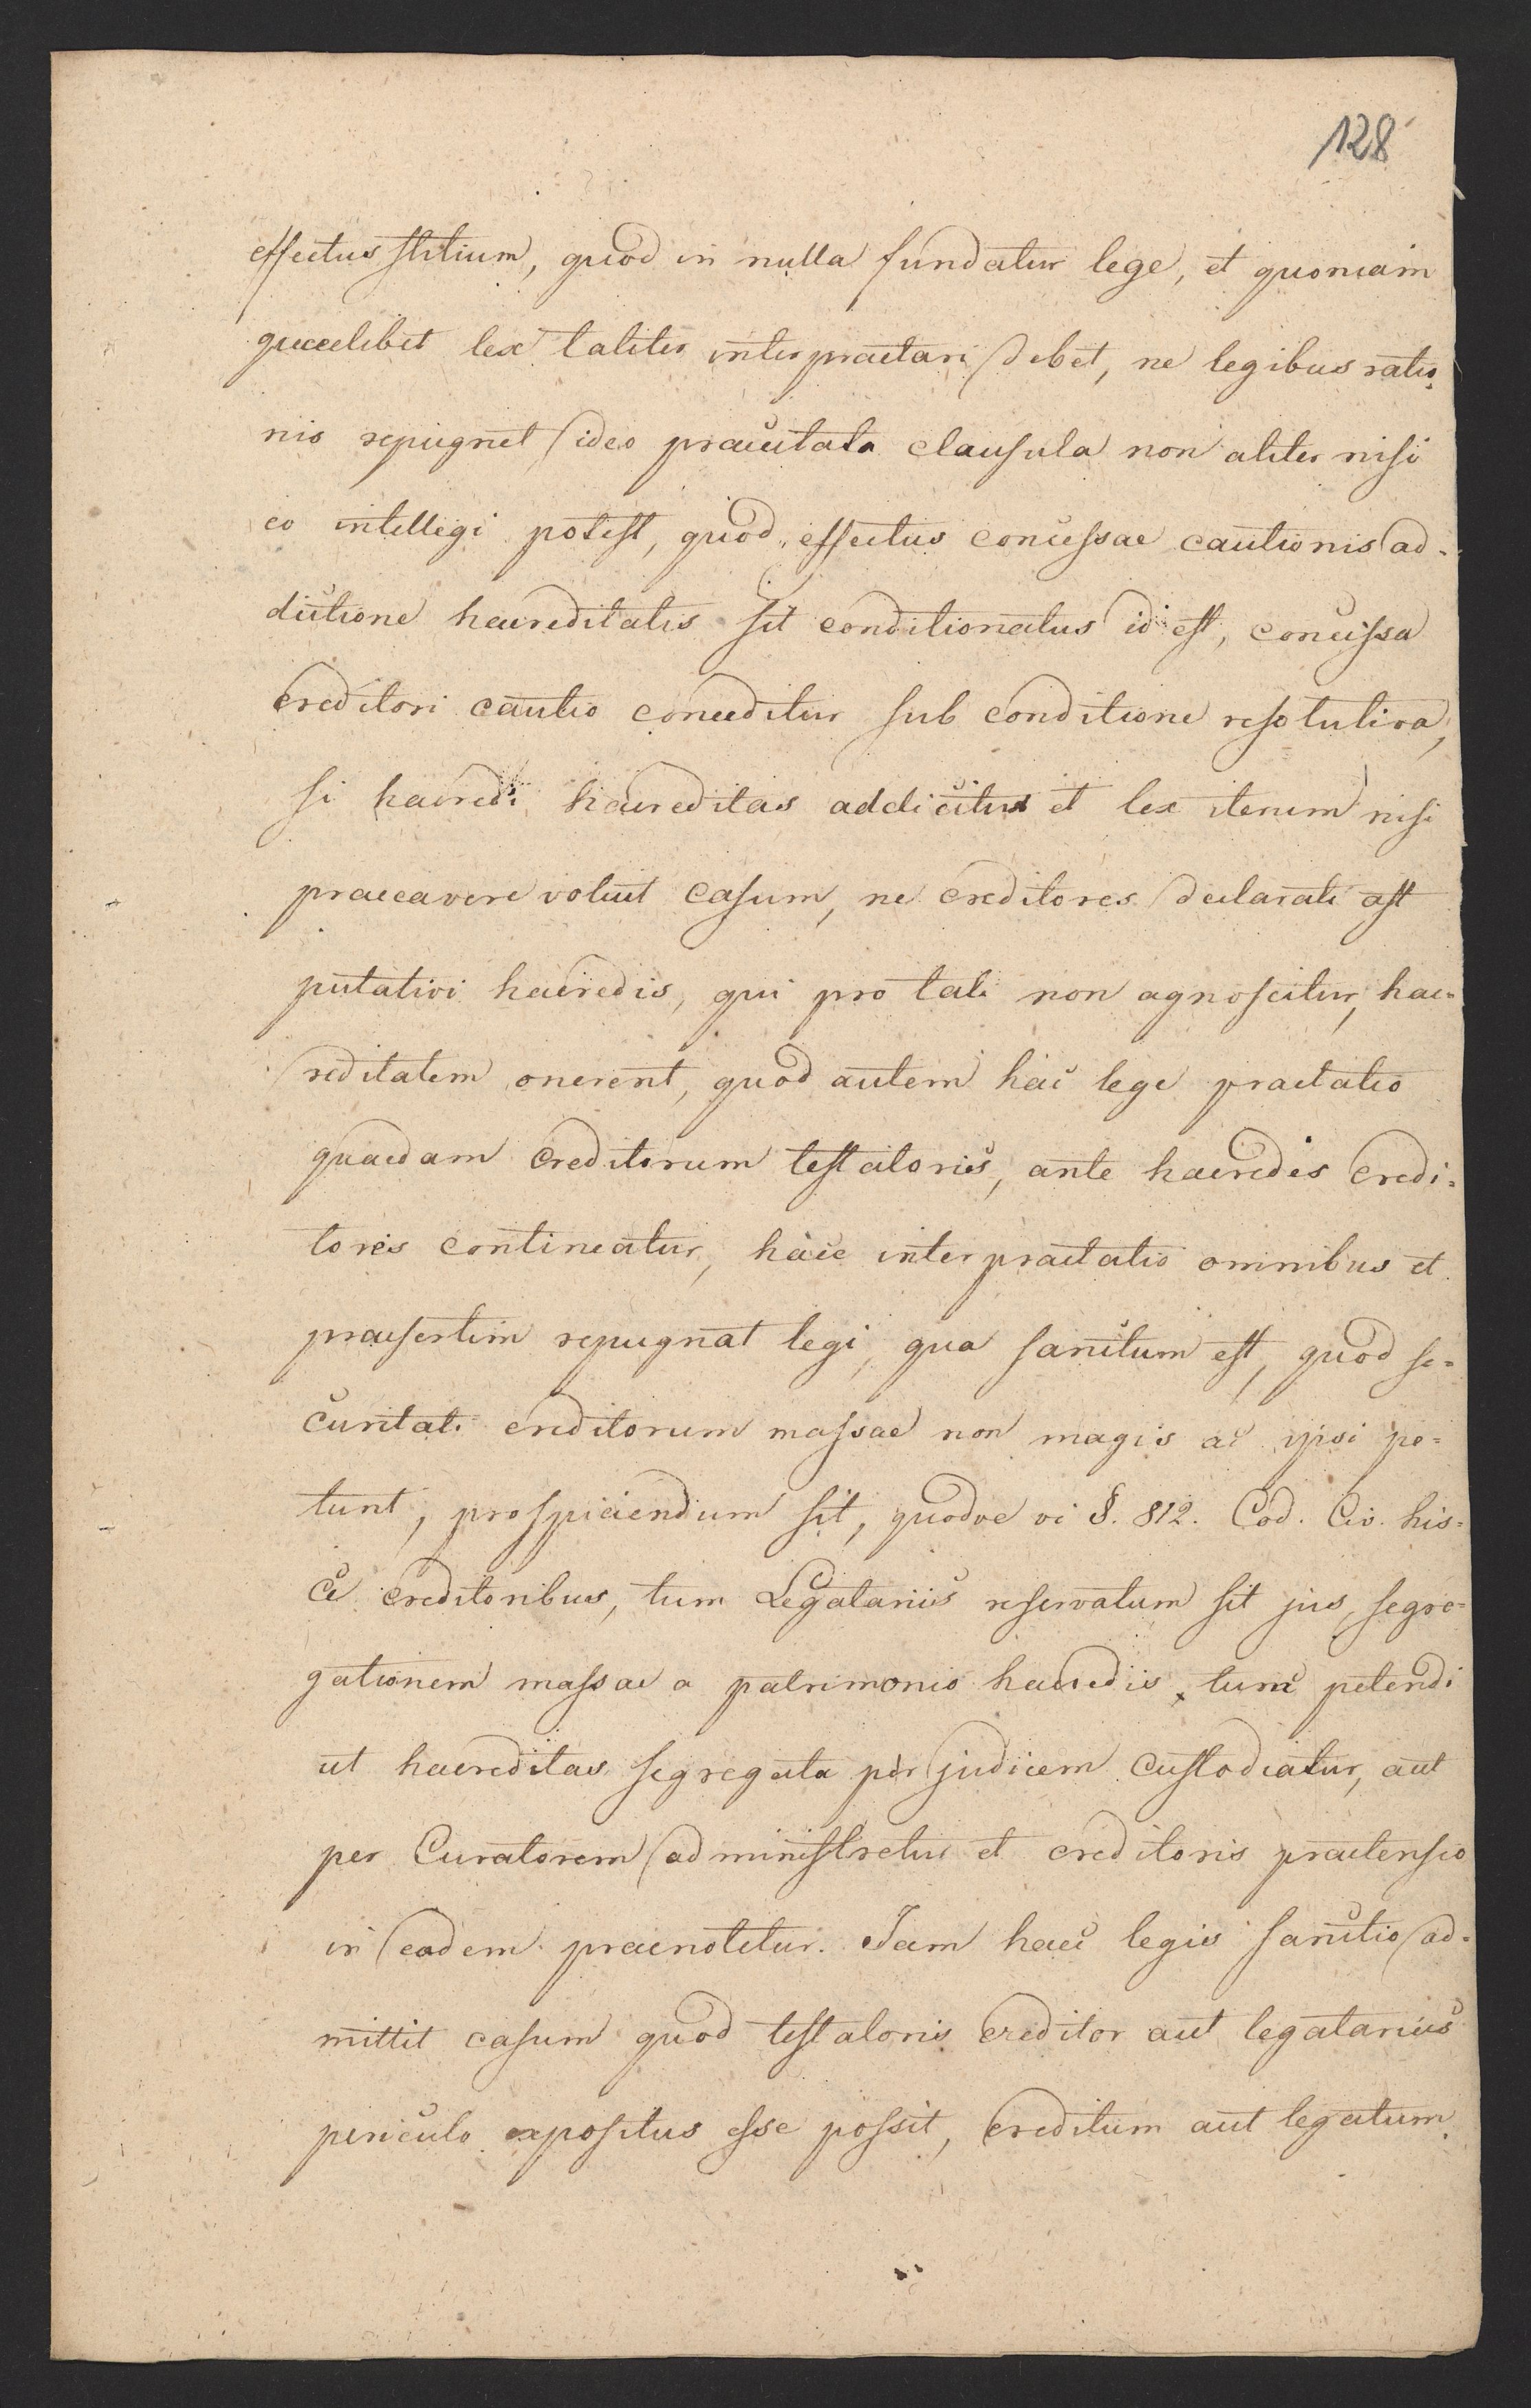 128
effectus stitium, quod in nulla fundatur lege, et quoniam
quaelibet lex taliter interpraetari debet, ne legibus ratio¬
nis repugnet ideo praecitata clausula non aliter nisi
eo intellegi potest, quod effectus concessae cautionis ad¬
dictione haereditatis sit conditionatus id est, concessa
creditori cautio conceditur sub conditione resolutiva,
si haeredi haereditas addicitur et lex iterum nisi
praecavere voluit casum, ne creditores declarati ast
putativi haeredis, qui pro tali non agnoscitur, hae¬
reditatem onerent, quod autem hac lege praelatio
quaedam creditorum testatoris, ante haeredis credi¬
tores contineatur, haec interpraetatio omnibus et
praesertim repugnat legi, qua sancitum est, quod se¬
curitati creditorum massae non magis ac ipsi pe¬
tunt, prospiciendum sit, quodve vi §. 812. Cod. Civ. his¬
ce creditoribus, tum Legatariis reservatum sit jus, segre¬
gationem massae a patrimonio haeredis, tunc petendi
ut haereditas segregata per judicem custodiatur, aut
per Curatorem administretur et creditoris praetensio
in eadem praenotetur. Jam haec legis sanctio ad¬
mittit casum quod testatoris creditor aut legatarius
periculo expositus esse possit, creditum aut legatum